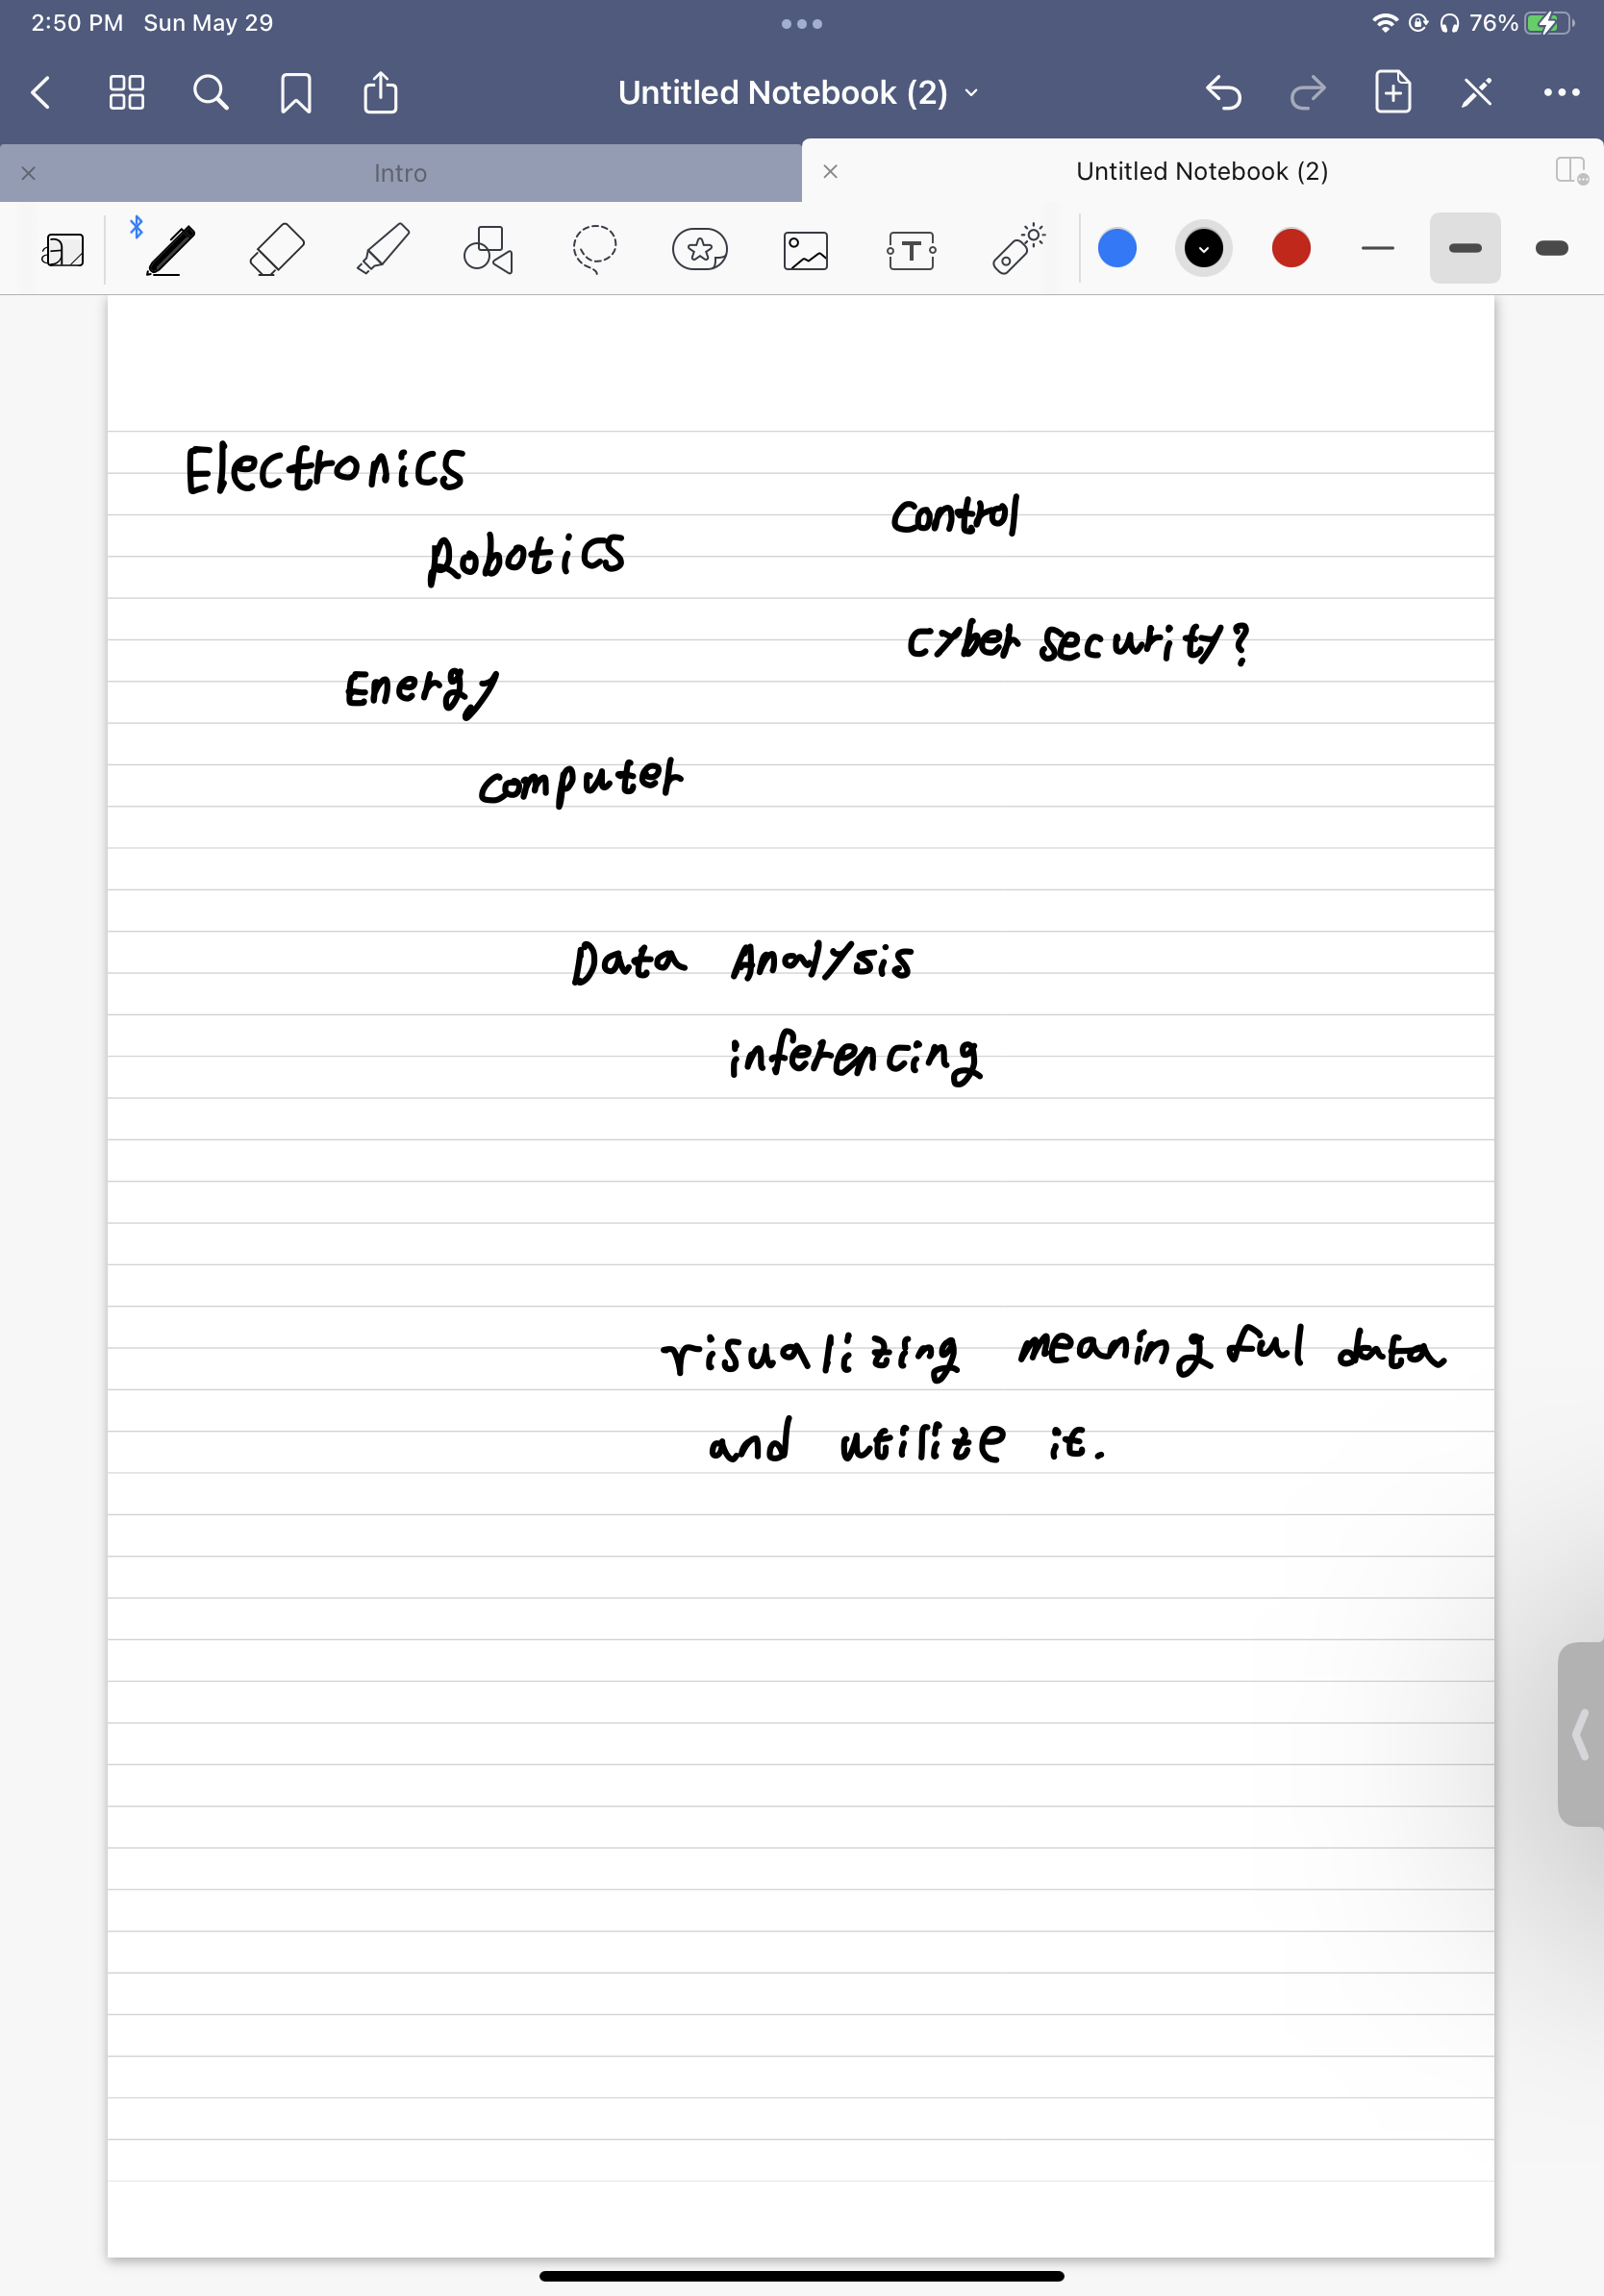 2:50 PM Sun May 29
76%
Untitled Notebook (2)
Intro
Untitled Notebook (2)
Electronics
Control
Robotics
Cyber security?
Energy
Computer
Data Analysis
inferencing
visualizing meaningful data
and utilize it.